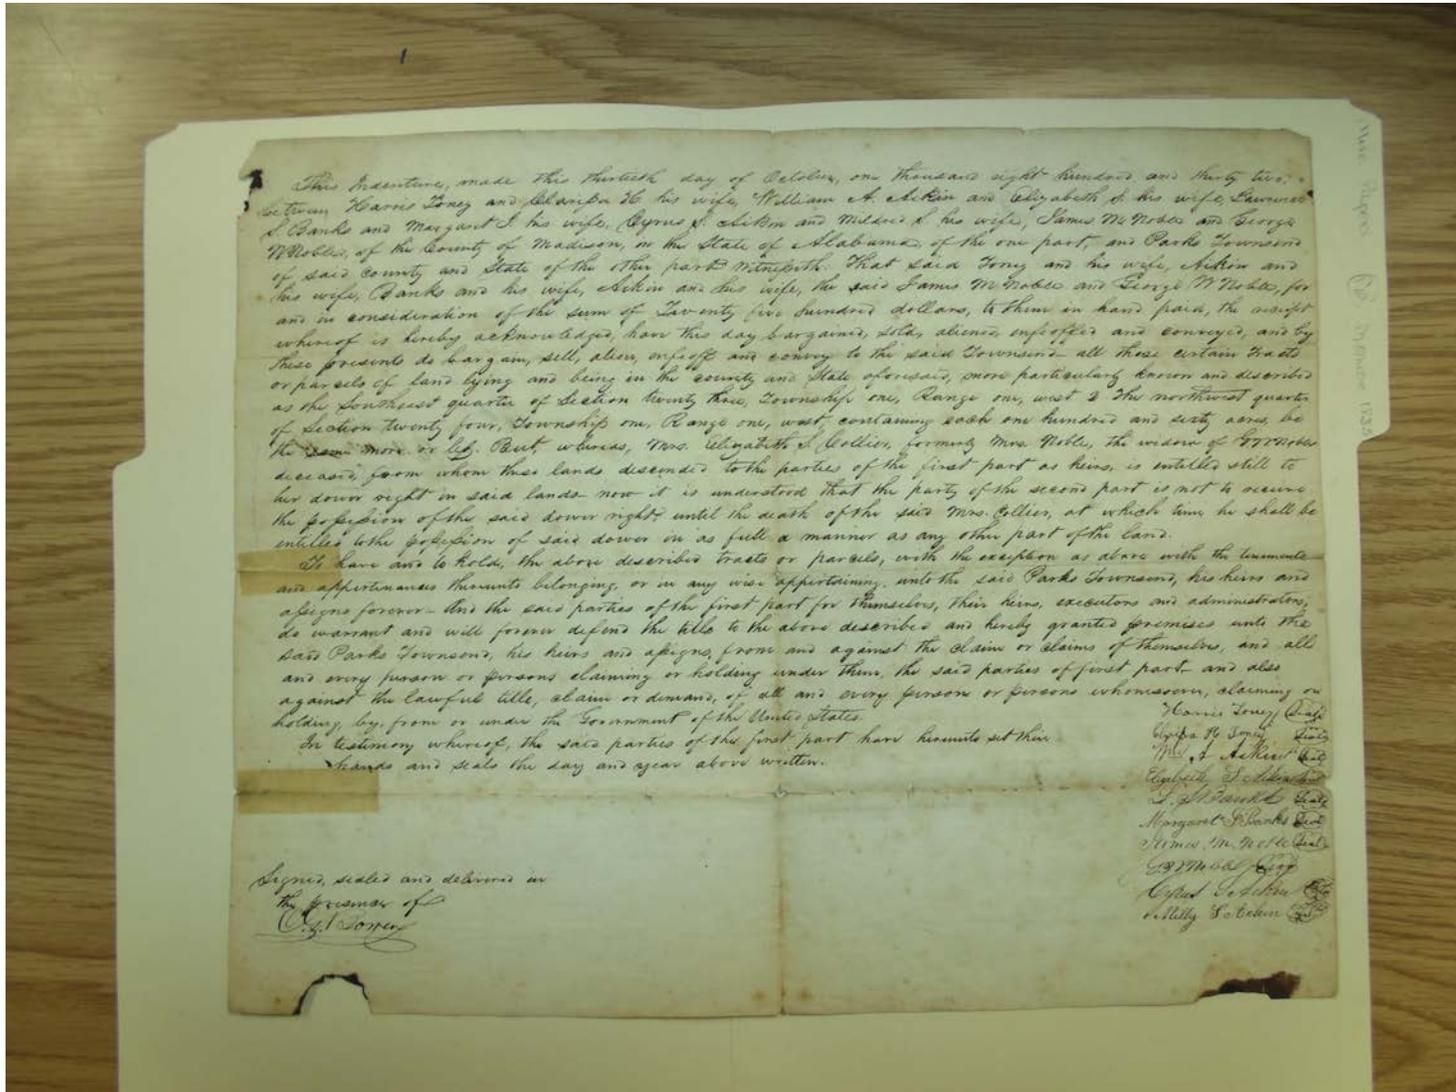 This Indenture, made this thirtieth day of October, one thousand eight hundred and thirty two,
between Harris Toney and Clarissa H. his wife, William A. Aikin and Elizabeth S. his wife, Lawrence
S. Banks and Margaret J. his wife, Cyrus S. Aikin and Mildred S. his wife, James M Noble and George
W Noble, of the County of Madison, in the State of Alabama, of the one part, and Parks Townsend
of said county and State of the other part Witnesseth. That said Toney and his wife, Aikin and
his wife, Banks and his wife, Aikin and his wife, the said James M Noble and George W Noble, for
and in consideration of the sum of Twenty five hundred dollars, to them in hand paid, the receipt
whereof is hereby acknowledged, have this day bargained, sold, aliened, enfeoffed and conveyed, and by
these presents do bargain, sell, alien, enfeoff and convey to the said Townsend all those certain tracts
or parcels of land lying and being in the county and State aforesaid, more particularly known and described
as the Southeast quarter of Section twenty three, Township one, Range one, west & The northwest quarter
of Section twenty four, Township one, Range one, west, containing each one hundred and sixty acres, be
the same more or less. But, whereas, Mrs. Elizabeth S. Collier, formerly Mrs. Noble, the widow of Noble
deceased, from whom these lands descended to the parties of the first part as heirs, is entitled still to
her dower right in said lands now it is understood that the party of the second part is not to receive
the possession of the said dower right, until the death of the said Mrs. Collier, at which time he shall be
entitled to the possession of said dower in as full a manner as any other part of the land.
To have and to hold, the above described tracts or parcels, with the exception as above with the tenements
and appurtenances thereunto belonging, or in any wise appertaining, unto the said Parks Townsend, his heirs and
assigns forever - And the said parties of the first part for themselves, their heirs, executors and administrators,
do warrant and will forever defend the title to the above described and hereby granted premises unto the
said Parks Townsend, his heirs and assigns, from and against the claim or claims of themselves, and all
and every person or persons claiming or holding under them, the said parties of first part and also
against the lawful title, claim or demand, of all and every person or persons whomsoever, claiming or
holding, by, from or under the Government of the United States.
In testimony whereof, the said parties of the first part have hereunto set their
hands and seals the day and year above written.
Harris Toney Seal
Clarissa H. Toney Seal
Wm. A Aikin Seal
Elizabeth S Aikin Seal
L. S Banks Seal
Margaret J Banks Seal
James M. Noble Seal
G W Noble Seal
Cyrus S Aikin
Milly S Aikin
Signed, sealed and delivered in
the presence of